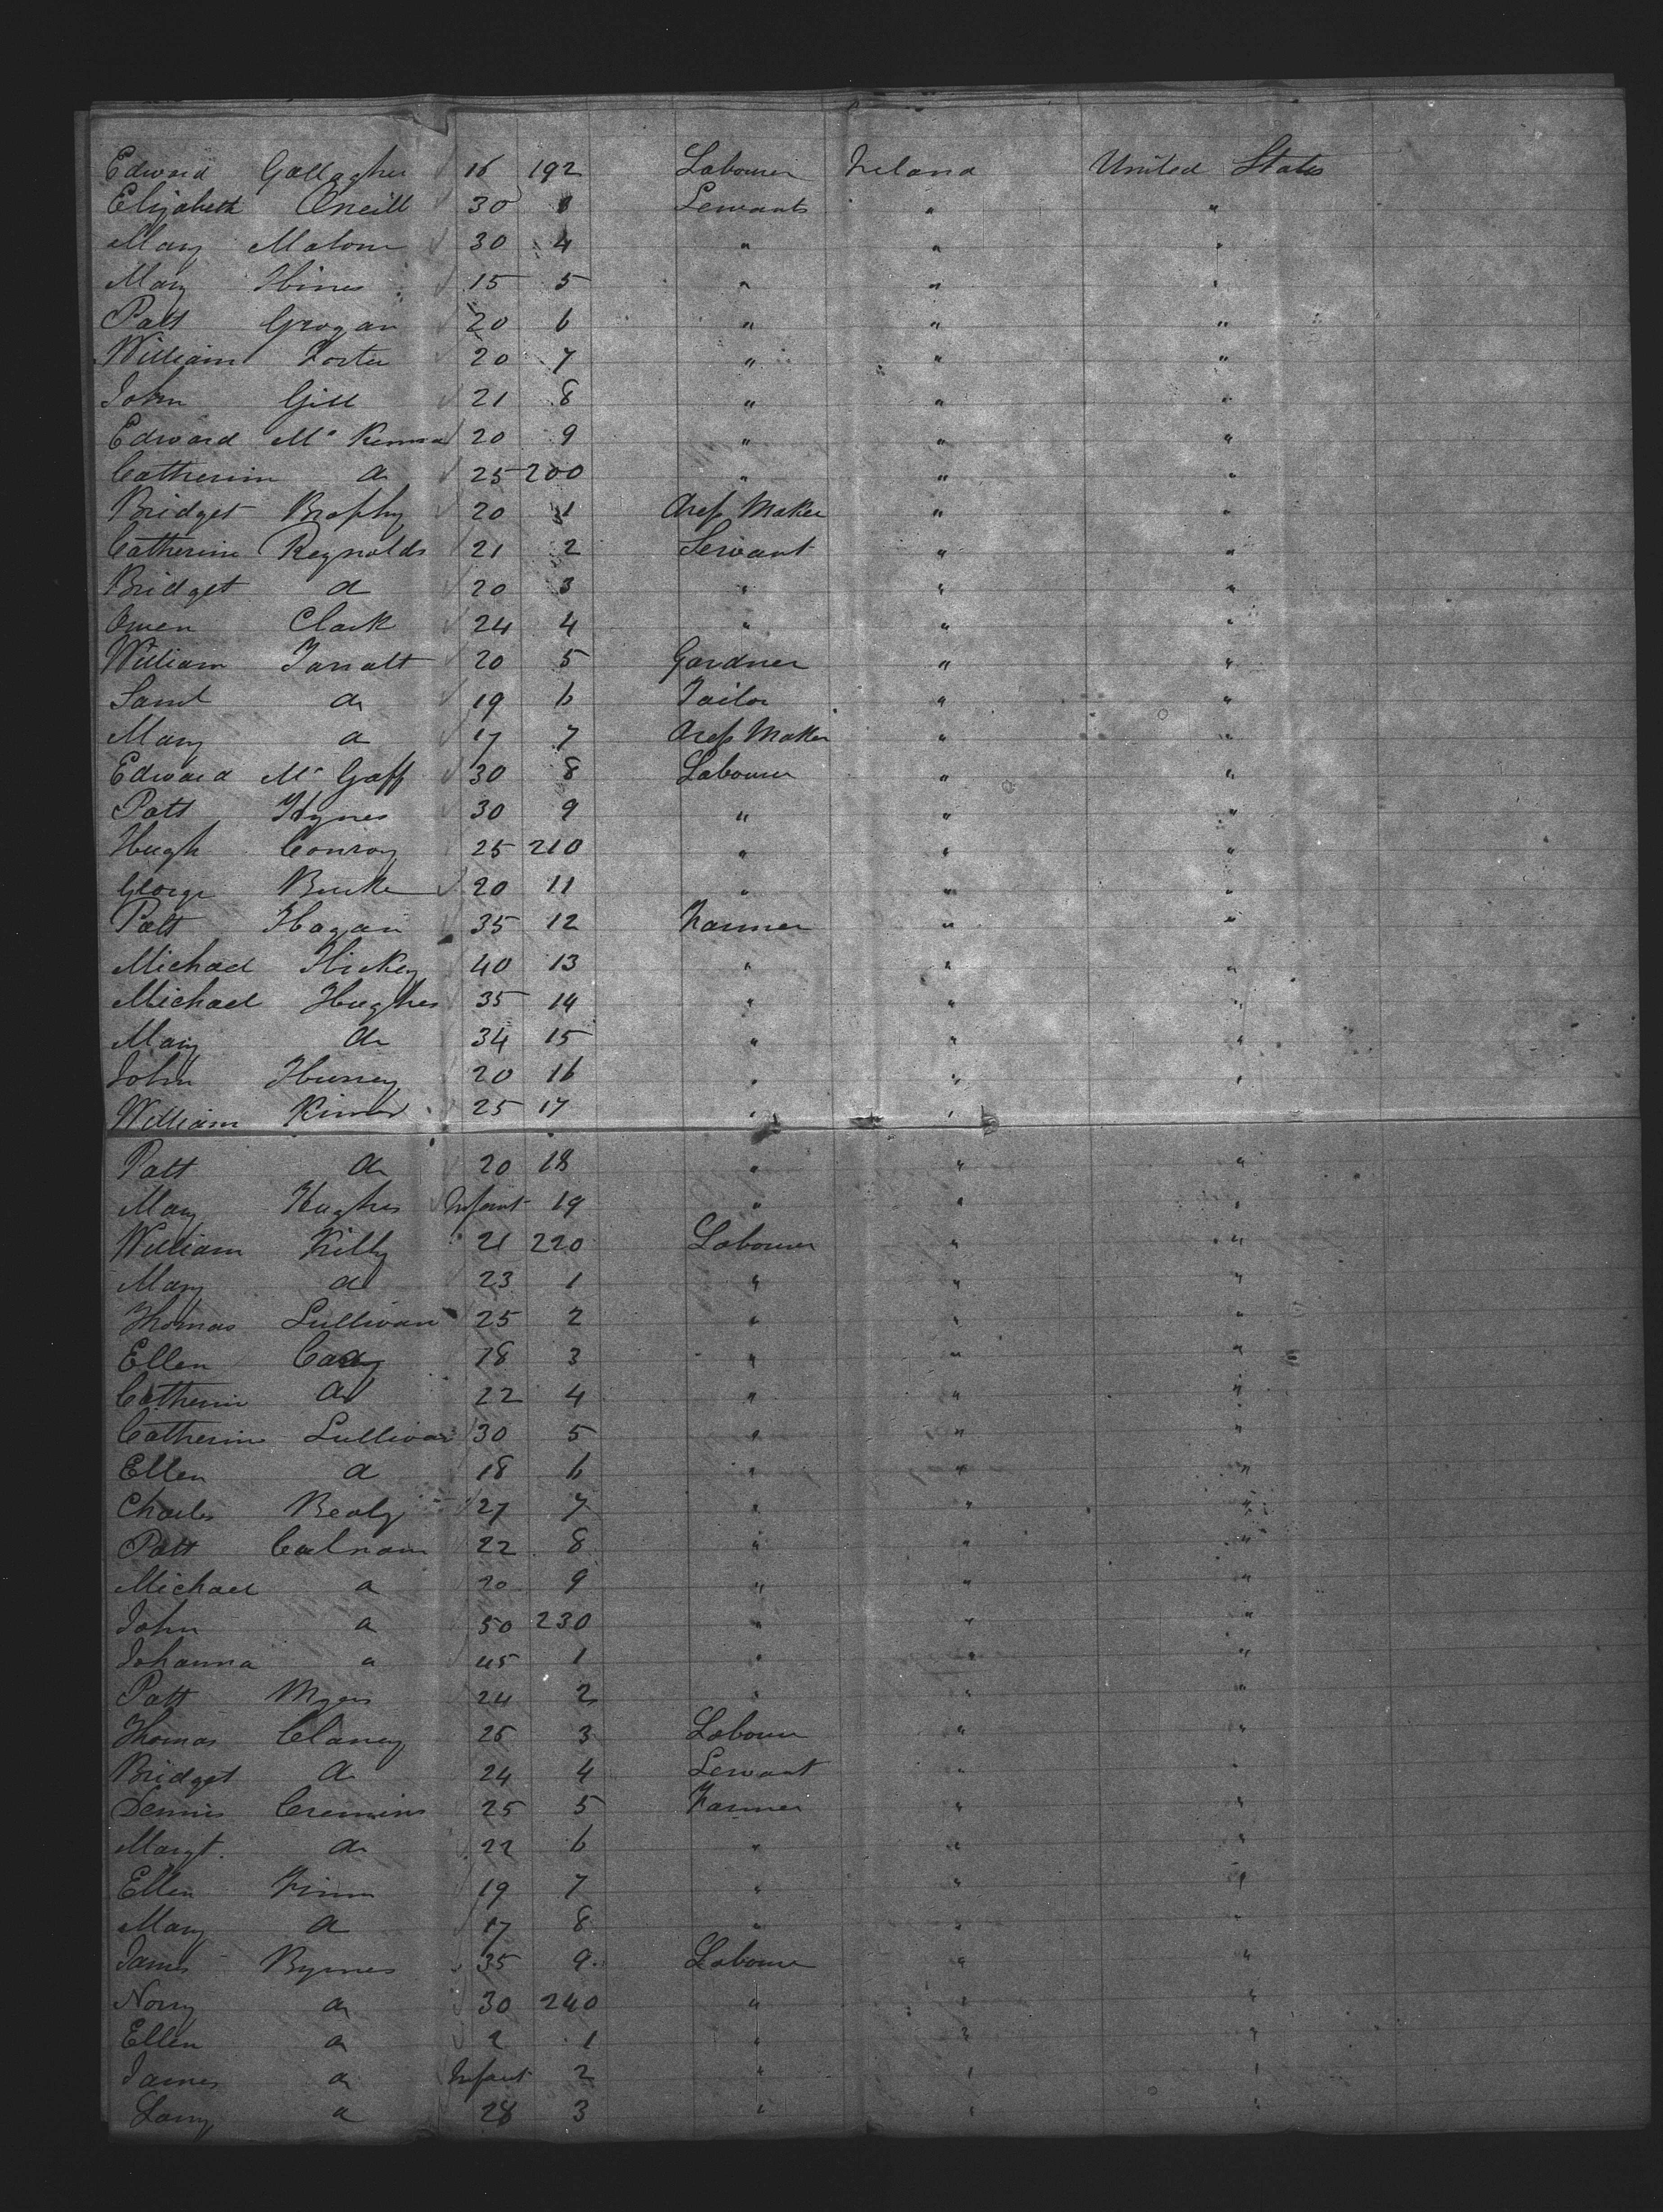 Edward Gallagher 16 192 Labourer Ireland United States
Elizabeth Oneill 30 Servants " "
Mary Malone 30 4 " " "
Mary Hines 15 5 " " "
Patt Grogan 20 6 " " "
William Foster 20 7 " " "
John Gill 21 8 " " "
Edward Mc Kenna 20 9 " " "
Catherine d 25 200 " " "
Bridget Brophy 20 1 Dress Maker " "
Catherine Reynolds 21 2 Servant " "
Bridget d 20 3 " " "
Owen Clark 24 4 " " "
William Jarratt 20 5 Gardner " "
Saml do 19 6 Tailor " "
Mary d 17 7 Dress Maker " "
Edward Mc Goff 30 8 Labourer " "
Patt Hynes 30 9 " " "
Hugh Conroy 25 210 " " "
George Burke 20 11 " " "
Patt Hogan 35 12 Farmer " "
Michael Hickey 40 13 " " "
Michael Hughes 35 14 " " "
Mary do 34 15 " " "
John Hurney 20 16 " " "
William 25 17 " "
Patt do 20 18 " " "
Mary Hughes Infant 19 " " "
William Killy 21 220 Labourer " "
Mary d 23 1 " " "
Thomas Sullivan 25 2 " " "
Ellen 18 3 " " "
Catherine d 22 4 " " "
Catherine Sullivan 30 5 " " "
Ellen d 18 6 " " "
Charles Bealy 27 7 " " "
Patt Calnan 22 8 " " "
Michael d 20 9 " " "
John d 50 230 " " "
Johanna d 45 1 " " "
Patt Myers 24 2 " " "
Thomas Clancy 25 3 Labourer " "
Bridget d 24 4 Servant " "
Dennis Cremins 25 5 Farmer " "
Margt. do 22 6 " " "
Ellen Finn 19 7 " " "
Mary d 17 8 " " "
James Byrnes 35 9 Labourer " "
Norry do 30 240 " " "
Ellen do 2 1 " " "
James d Infant 2 " " "
Larry d 28 3 " " "